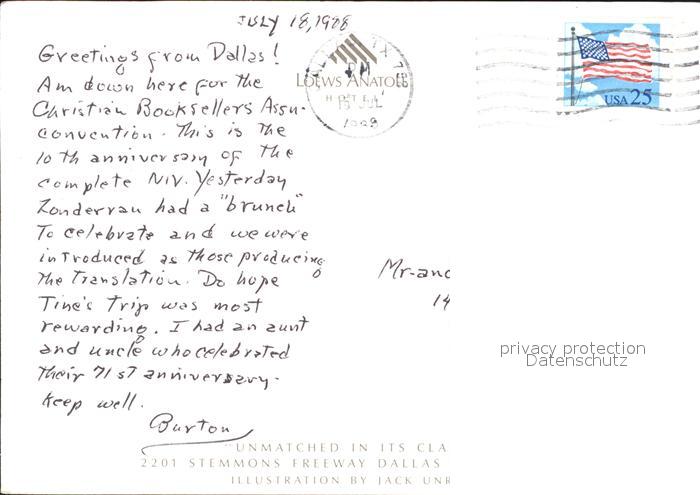 July 18, 1988
Greetings from Dallas!
Am down here for the
Christian Booksellers Assn.
convention. This is the
10th anniversary of the
complete NIV. Yesterday
Zondervan had a "brunch"
To celebrate and we were
introduced as those producing
the translation. Do hope
Tine's Trip was most
rewarding. I had an aunt
and uncle who celebrated
their 71st anniversary.
Keep well.
Burton
TX
PM
LOEWS ANATOLE
USA 25
Mr. and
14
privacy protection
Datenschutz
"UNMATCHED IN ITS CLA
2201 STEMMONS FREEWAY DALLAS
ILLUSTRATION BY JACK UNR